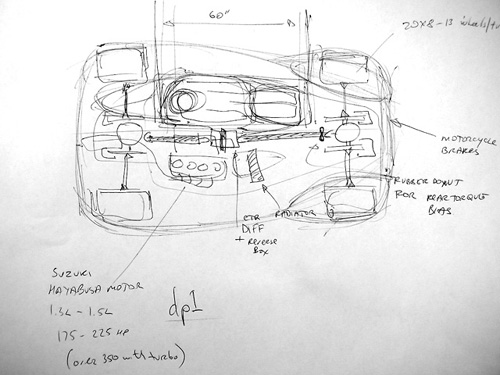 60"
20X8-13 wheels/
MOTORCYCLE
BRAKES
RUBBER DONUT
FOR REAR TORQUE
BIAS
CTR
DIFF
+ Reverse
Box
RADIATOR
SUZUKI
HAYABUSA MOTOR
1.3L - 1.5L
175 - 225 HP
(over 350 with turbo)
dp1